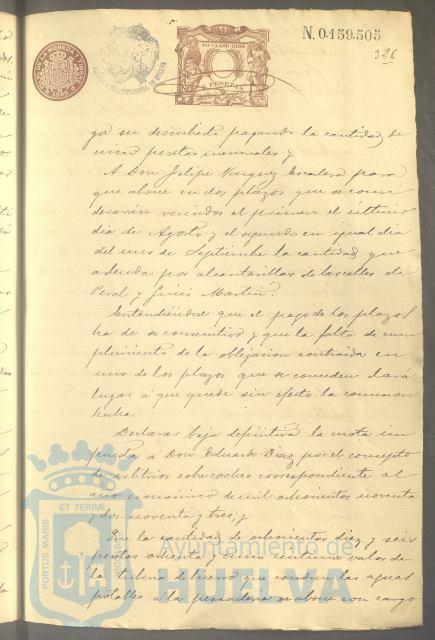 N. 0.159.505
326
ga su descubierto pagando la cantidad de
cinco pesetas mensuales y
A Don Felipe Vazquez Escalera para
que abone en dos plazos que se consi
derarán vencidos el primero el último
dia de Agosto y el segundo en igual dia
del mes de Septiembre la cantidad que
adeuda por alcantarillas de las calles de
Peral y Ginés Martin.
Entendiéndose que el pago de los plazos
ha de ser consecutivo y que la falta de cum
plimiento de la obligacion contraida en
uno de los plazos que se conceden dará
lugar á que quede sin efecto la concesion
hecha.
Declarar baja definitiva la cuota im
puesta á Don Eduardo Diaz por el concepto
de arbitrios sobre coches correspondiente al
año economico de mil ochocientos noventa
y dos noventa y tres; y
Que la cantidad de ochocientas diez y seis
pesetas ochenta y cinco centimos valor de
la tuberia de hierro que conduce las aguas
potables á la pescaderia se abone con cargo
PORTUS MARIS
ET TERRÆ
Ayuntamiento de
HUELVA